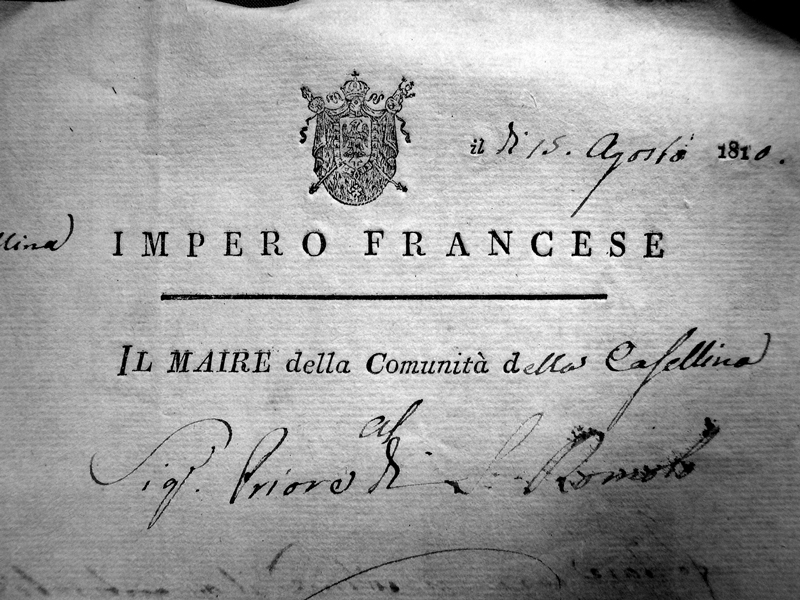 il dì 15. Agosto 1810.
IMPERO FRANCESE
IL MAIRE della Comunità della Casellina
al
Sigr. Priore di S. Romolo